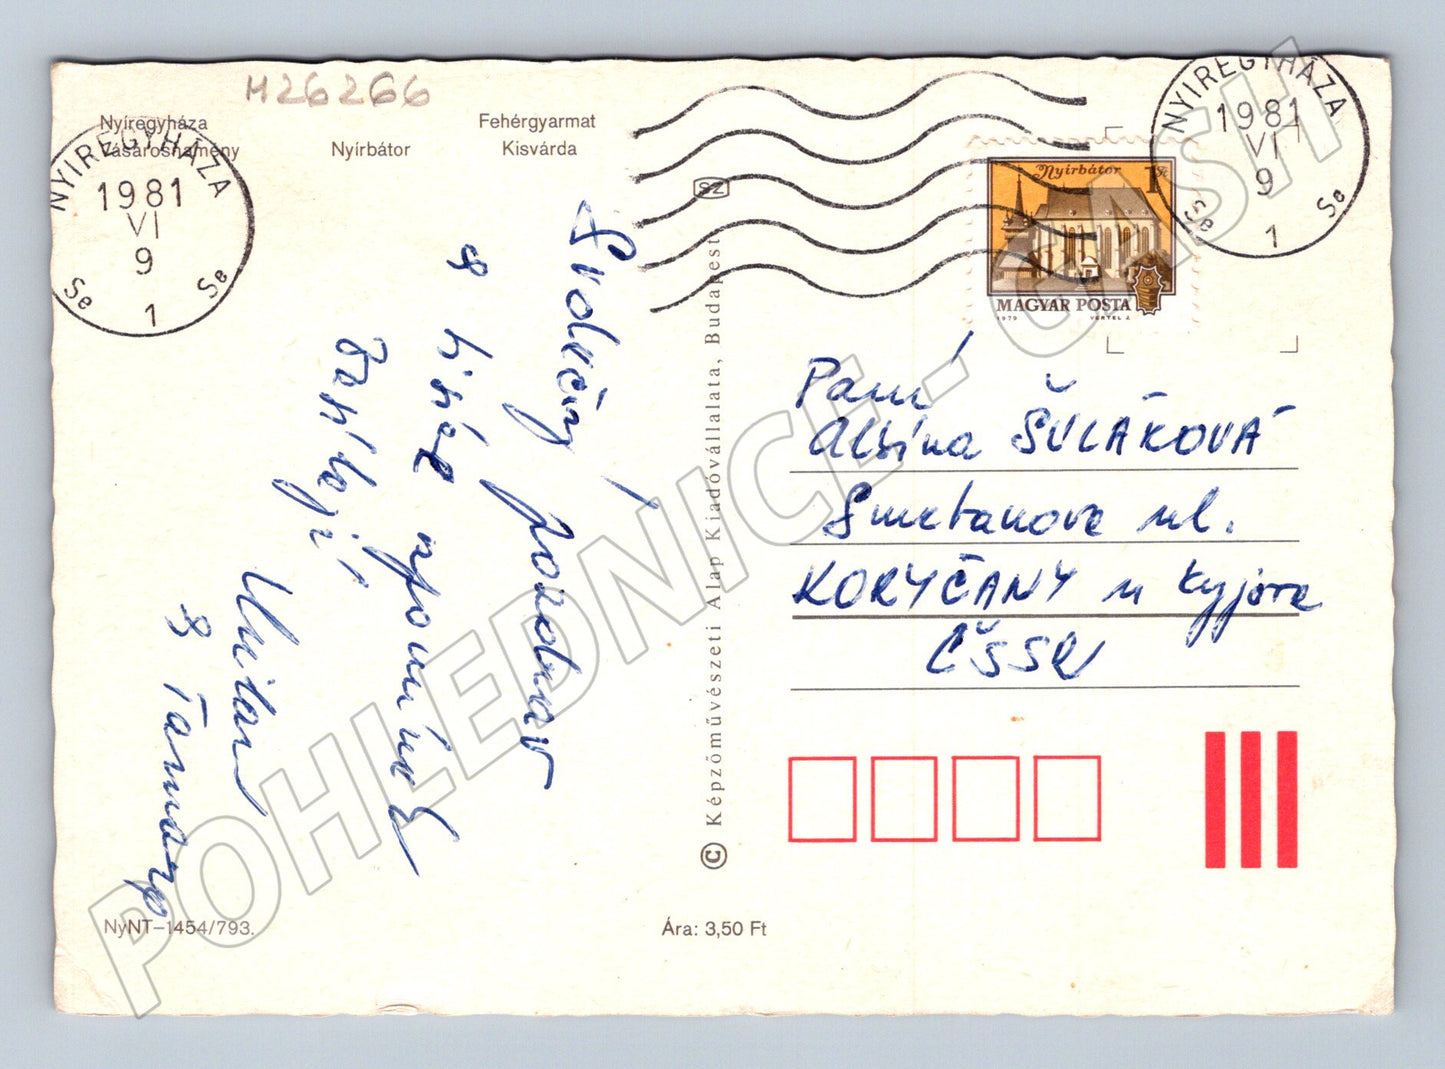 M26266
Nyíregyháza
Vásárosnamény
Nyírbátor
Fehérgyarmat
Kisvárda
NYIREGYHÁZA
1981
VI
9
Se 1 Se
SZ
NYIREGYHÁZA
1981
VI
9
Se 1 Se
Nyírbátor 1 Ft
MAGYAR POSTA
1979 VERTEL J.
Srdečný pozdrav
a hinde vzpomínk
zasílají
Milan
a Tamara
Paní
Albína ŠULÁKOVÁ
Smetanova ul.
KORYČANY u Kyjova
ČSSR
© Képzőművészeti Alap Kiadóvállalata, Budapest
NyNT–1454/793.
Ára: 3,50 Ft
POHLEDNICE - CASH